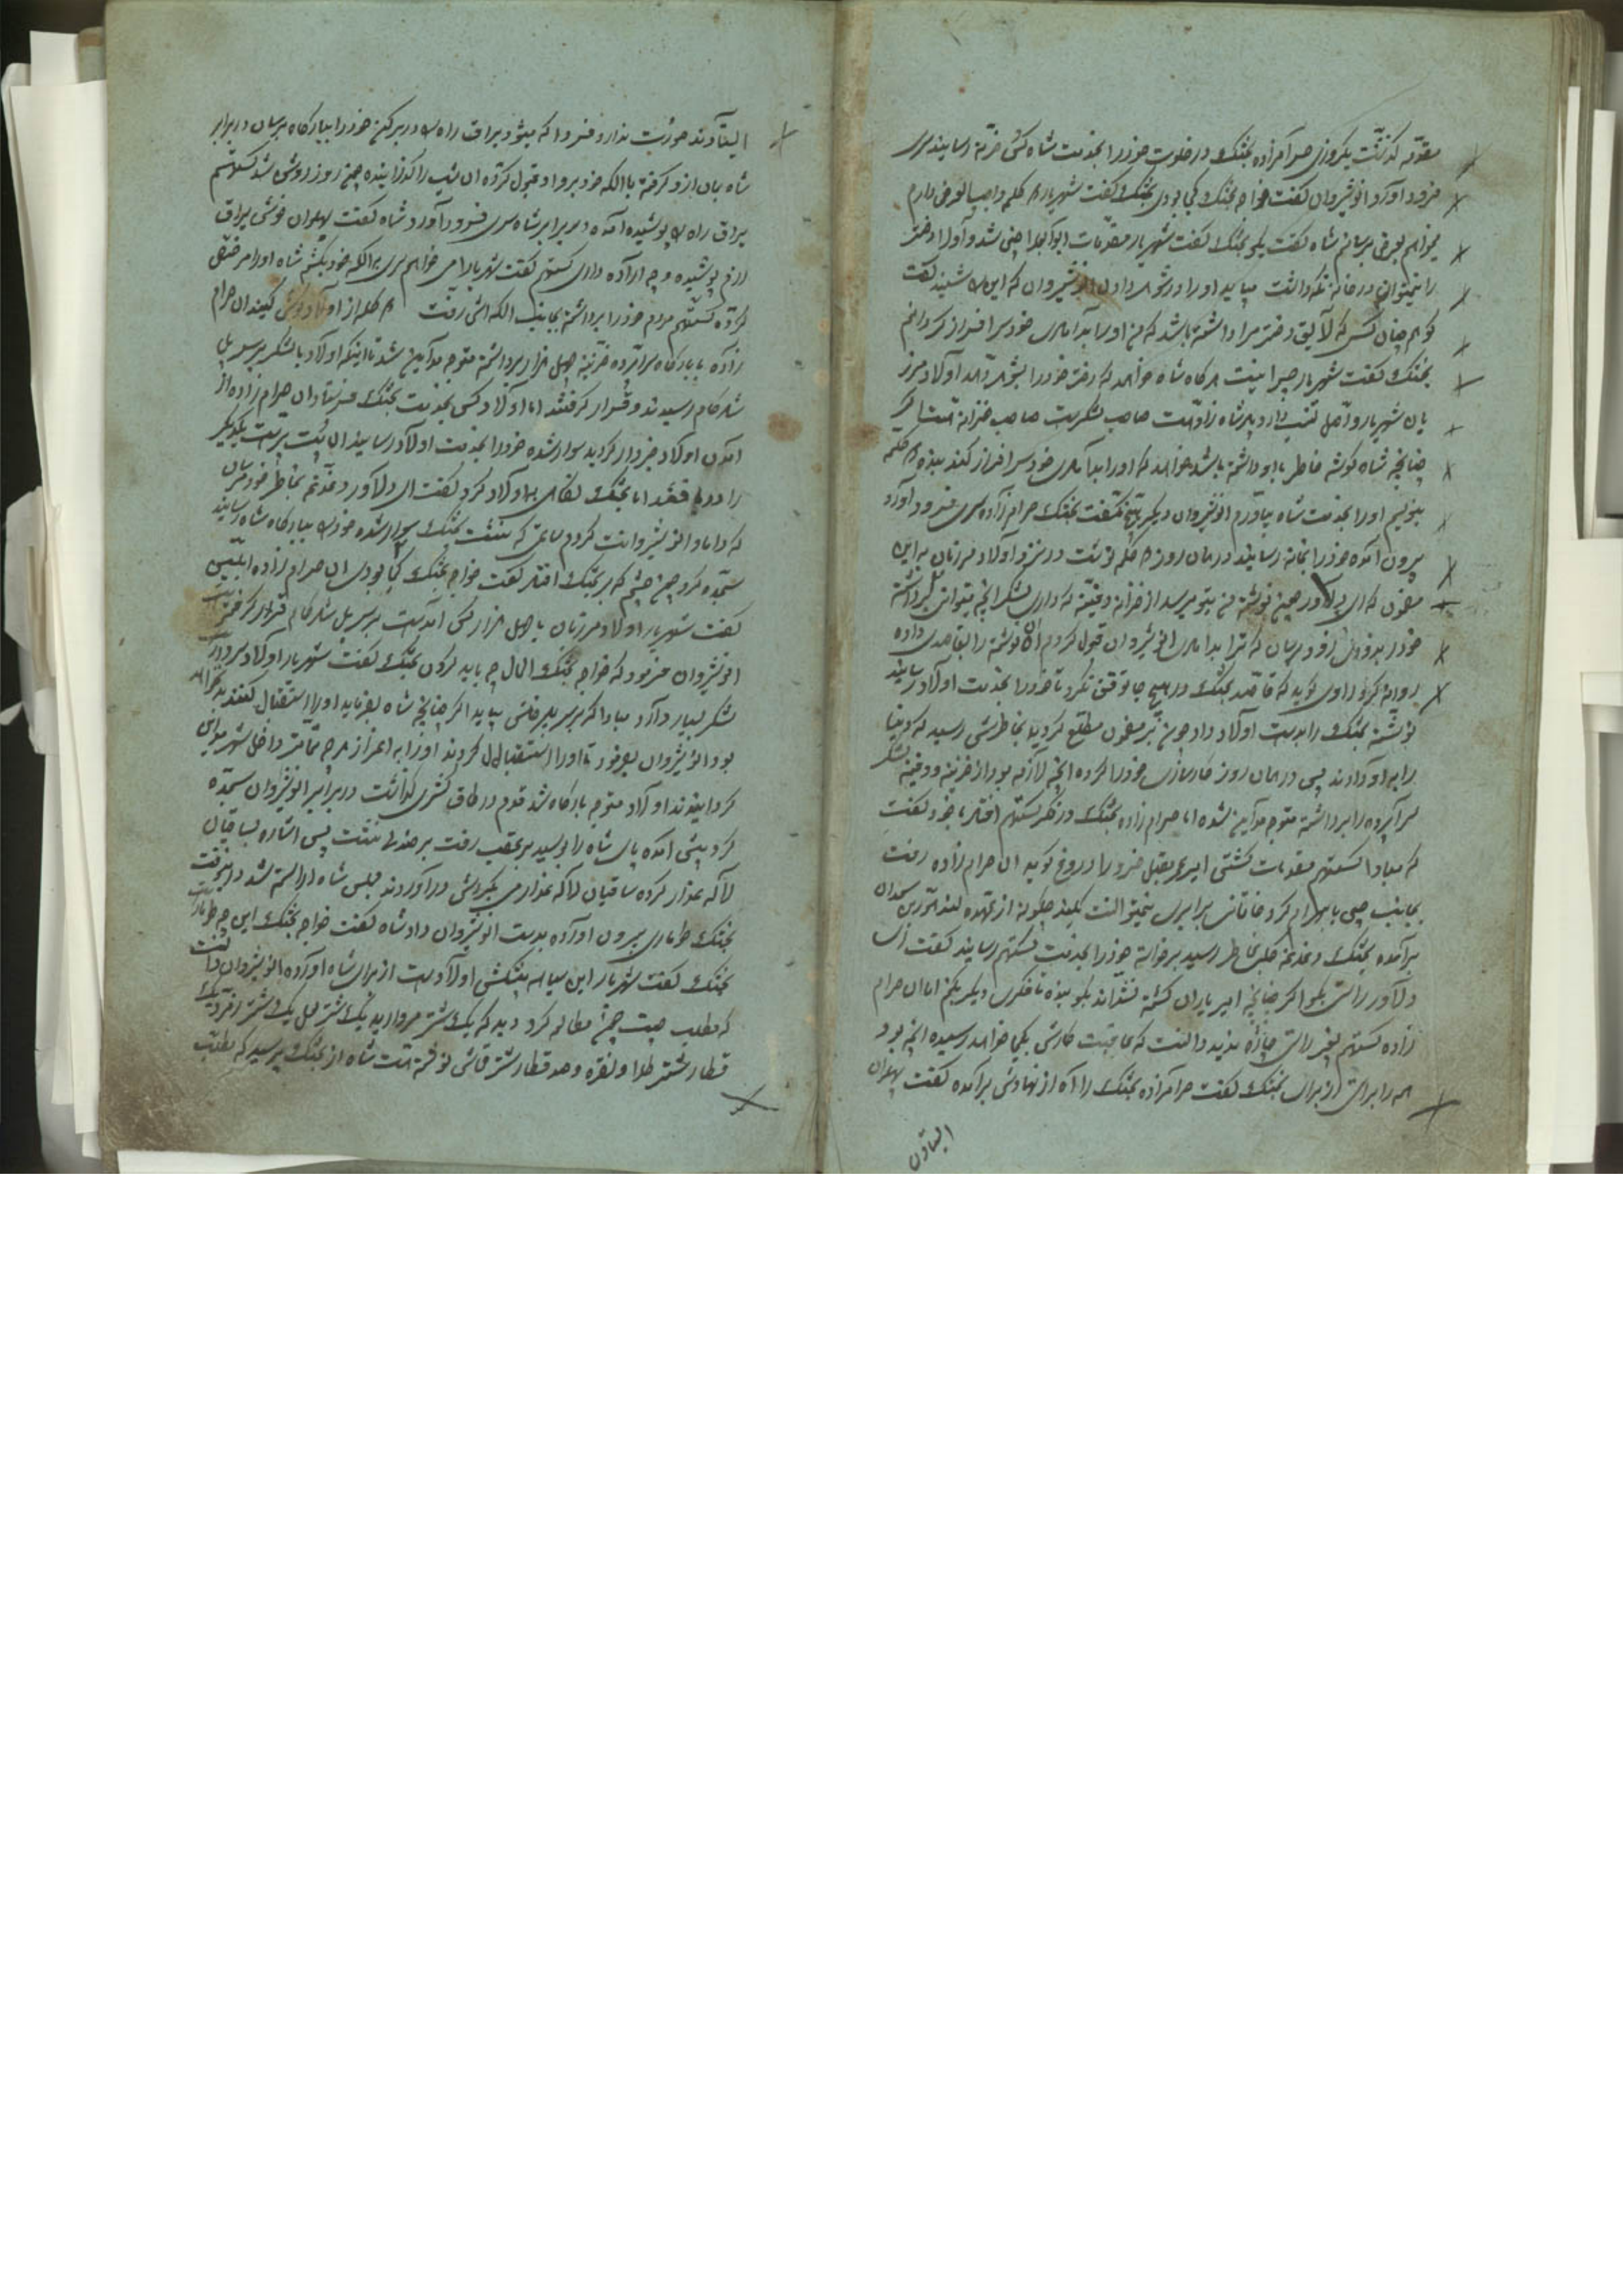 مقدمه گذشت یکروزی حرامزاده بختک در خلوت خودرا بخدمت شاه رسانید سری
فرود آورد انوشیروان گفت خواجه بختک کجا بودی بختک گفت شهریارا حکم واجب العرض دارم
میخواهم بعرض برسانم شاه گفت بگو بختک گفت شهریار مقدمات شد و اورا دختر
را نمیتوان در خانه نگه داشت میباید اورا در شوهر داد انوشیروان که این را شنید گفت
کو هم چنان کسی که لایق دختر مرا داشته باشد که من اورا بدامادی خود سرافراز گردانم
بختک گفت شهریار چرا نیست هر گاه شاه خواهد که دختر خودرا بشوهر دهد اولاد مرز
بان شهریار و اصل نسب دارد شاه زاده است صاحب لشکر است صاحب خزانه است اگر
چنانچه شاه گوشه خاطر باو داشته باشد خواهد که اورا بدامادی خود سرافراز کند بنده
بنویسم اورا بخدمت شاه بیاورم انوشیروان دیگر هیچ نگفت بختک حرامزاده سری فرود آورد
بیرون آمده خودرا بخانه رسانید در همان روز نوشت در نزد اولاد مرزبان به این
مضمون که ای دلاور چون نوشته من بتو میرسد از خزانه و دفینه که داری لشکر آنچه میتوانی برداشته
خودرا برسان که ترا بدامادی انوشیروان قبول کردم آن نوشته را بقاصدی داده
روانه کرد راوی گوید که قاصد بختک در هیچ جا توقف نکرد تا خودرا بخدمت اولاد رسانید
نوشته بختک را بدست اولاد داد چون بر مضمون مطلع گردید بخاطرش رسید که دنیا
را به او دادند پس در همان روز کارسازی خودرا کرده آنچه لازمه بود از خزینه و دفینه لشکر
سراپرده را برداشته متوجه مداین شد اما حرام زاده بختک در فکر گستهم افتاد با خود گفت
که مبادا گستهم مقدمات کشتی امیر بقبل خودرا دروغ گوید آن حرام زاده رفت
بجانب چین با بهرام گرد خاقانی برابری نمیتوانست بکند چگونه از عهده
برآمده بختک دغدغه بخاطر رسید برخواسته خودرا بخدمت گستهم رسانید گفت ای
دلاور راستی بگو اگر چنانچه امیر یاران کشته نشده‌اند بگو بنده تا فکری دیگر بکنم اما آن حرام
زاده گستهم بغیر راستی چاره ندید دانست که عاقبت کارش بکجا خواهد رسید آنچه بود
همه را براستی از برای بختک گفت حرامزاده بختک را آه از نهادش برآمده گفت پهلوان
ایستادن
ایستادن صورت ندارد فردا که میشود یراق راه را در بر کن خودرا ببارگاه برسان در برابر
شاه بان ازو گرفته با الکه خود برو او قبول کرده آن شب را گذرانیده چون روز روشن شد گستهم
یراق راه پوشیده آمده در برابر شاه سری فرود آورد شاه گفت پهلوان خوش یراق
رزم پوشیده و چه اراده داری گستهم گفت شهریارا می خواهم سری به الکه خود بکشم شاه اورا مرخص
کرده گستهم مردم خودرا برداشته بجانب الکه اش رفت کلمه از اولاد گوش کنید آن حرام
زاده با بارگاه سراپرده خزینه چهل هزار برداشته متوجه مداین شد تا اینکه اولاد با لشکر بر سر پل
رسیدند و قرار گرفتند اما اولاد کس بخدمت بختک فرستاد آن حرام زاده از
آمدن اولاد خبردار گردید سوار شده خودرا بخدمت اولاد رسانید آن بت پرست یکدیگر
را دریافتند اما بختک نگاهی به اولاد کرد گفت ای دلاور دغدغه بخاطر خود مرسان
که داماد انوشیروانت کردم بختک سوار شده خودرا ببارگاه شاه رسانید
سجده کرد چون چشم که بر بختک افتاد گفت خواجه بختک کجا بودی آن حرام زاده ابلیس
گفت شهریار اولاد مرزبان با چهل هزار کس آمده است بر سر پل قرار گرفته است
انوشیروان فرمود که خواجه بختک الحال چه باید کردن بختک گفت شهریار اولاد سردار
لشکر بسیار دارد مبادا که بیاید اگر چنانچه شاه بفرماید اورا استقبال کنند بد نخواهد
بود انوشیروان بفرمود تا اورا استقبال کردند اورا به اعزاز هر چه تمامتر داخل شهر مداین
گردانیدند اولاد متوجه بارگاه شد قدم در طاق کسری گذاشت در برابر انوشیروان سجده
کرد پیش آمده پای شاه را بوسید بر عقب رفت بر صندلی نشست پس اشاره بساقیان
لاله عذار کرده ساقیان لاله عذار می بگردش در آوردند مجلس شاه آراسته شد در آنوقت
بختک طوماری بیرون آورده بدست انوشیروان داد شاه گفت خواجه بختک این چه طومار است
بختک گفت شهریار این سیاهه پیشکش اولاد است از برای شاه آورده انوشیروان گفت
که مطلب چیست چون مطالعه کرد دید که یک شتر مروارید یک شتر لعل یک شتر زمرد یک
قطار شتر طلا و نقره و صد قطار شتر قماش نوشته است شاه از بختک پرسید که مطلب